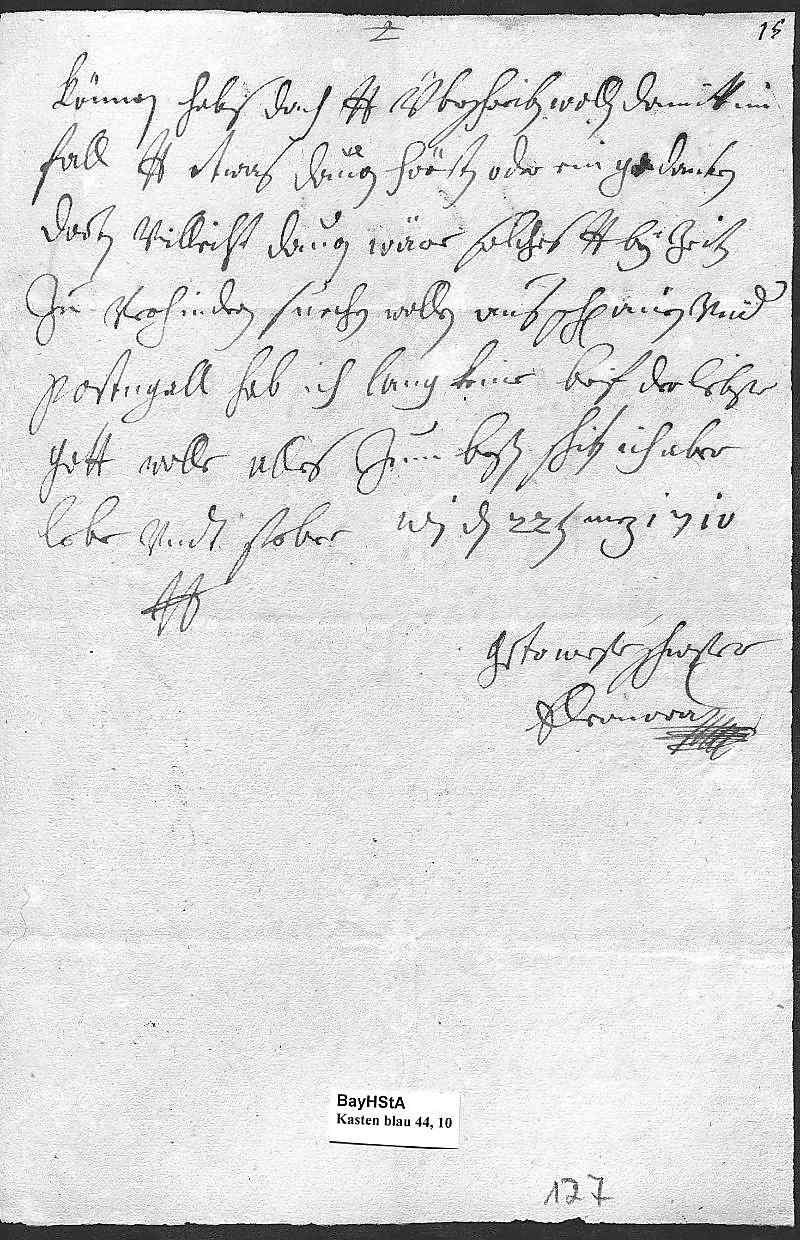 2
15
können habs doch # Überschreiben wollen damit # im
fall # etwas davon hörten oder ein gedanken
dortn Villeicht davon wäre solches # bey Zeiten
Zu Verhindern suechen wollen aus Spanien Vnd
Portugall hab ich lang keine brif der liebste
gott wolle alles Zum besten schiken ich aber
lebe Vndt sterbe den 22 merz 1710
#
getreweste schwester
Eleonora
BayHStA
Kasten blau 44, 10
127